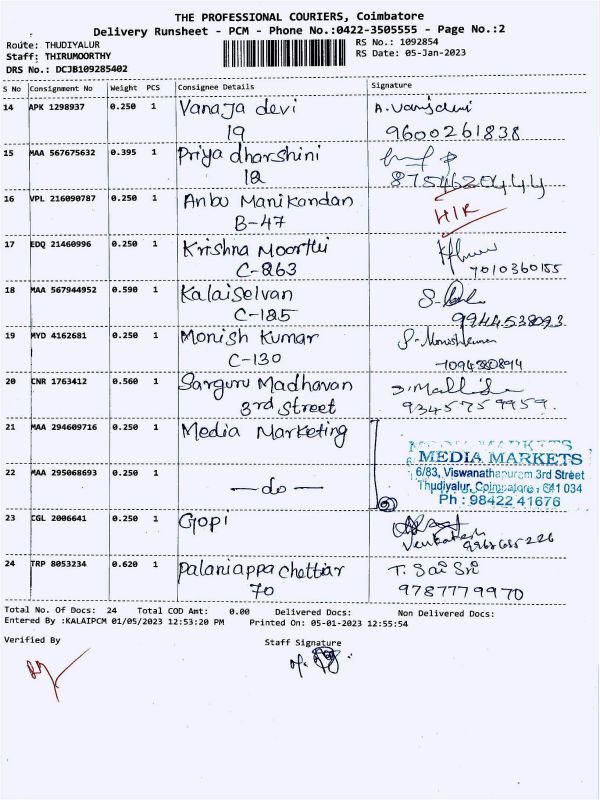 THE PROFESSIONAL COURIERS, Coimbatore
Delivery Runsheet - PCM - Phone No.:0422-3505555 - Page No.:2
Route: THUDIYALUR
RS No.: 1092854
Staff: THIRUMOORTHY
RS Date: 05-Jan-2023
DRS No.: DCJB109285402
S No Consignment No Weight PCS Consignee Details Signature
14 APK 1298937 0.250 1 Vanaja devi
19 9600261838
15 MAA 567675632 0.395 1 Priya dharshini
12 8754620444
16 VPL 216090787 0.250 1 Anbu Manikandan
B-47 H/R
17 EDQ 21460996 0.250 1 Krishna Moorthi
C-263 7010360155
18 MAA 567944952 0.590 1 Kalaiselvan
C-125 9944538093
19 MYD 4162681 0.250 1 Monish Kumar
C-130
20 CNR 1763412 0.560 1 Sarguru Madhavan
3rd Street 9345759959.
21 MAA 294609716 0.250 1 Media Marketing
MEDIA MARKETS
6/83, Viswanathapuram 3rd Street
22 MAA 295068693 0.250 1 — do —
Thudiyalur, Coimbatore - 641 034
Ph : 98422 41676
23 CGL 2006641 0.250 1 Gopi
Venkatesh
24 TRP 8053234 0.620 1 Palaniappa Chettiar T. Sai Sri
70 9787779970
Total No. Of Docs: 24 Total COD Amt: 0.00 Delivered Docs: Non Delivered Docs:
Entered By :KALAIPCM 01/05/2023 12:53:20 PM Printed On: 05-01-2023 12:55:54
Verified By Staff Signature